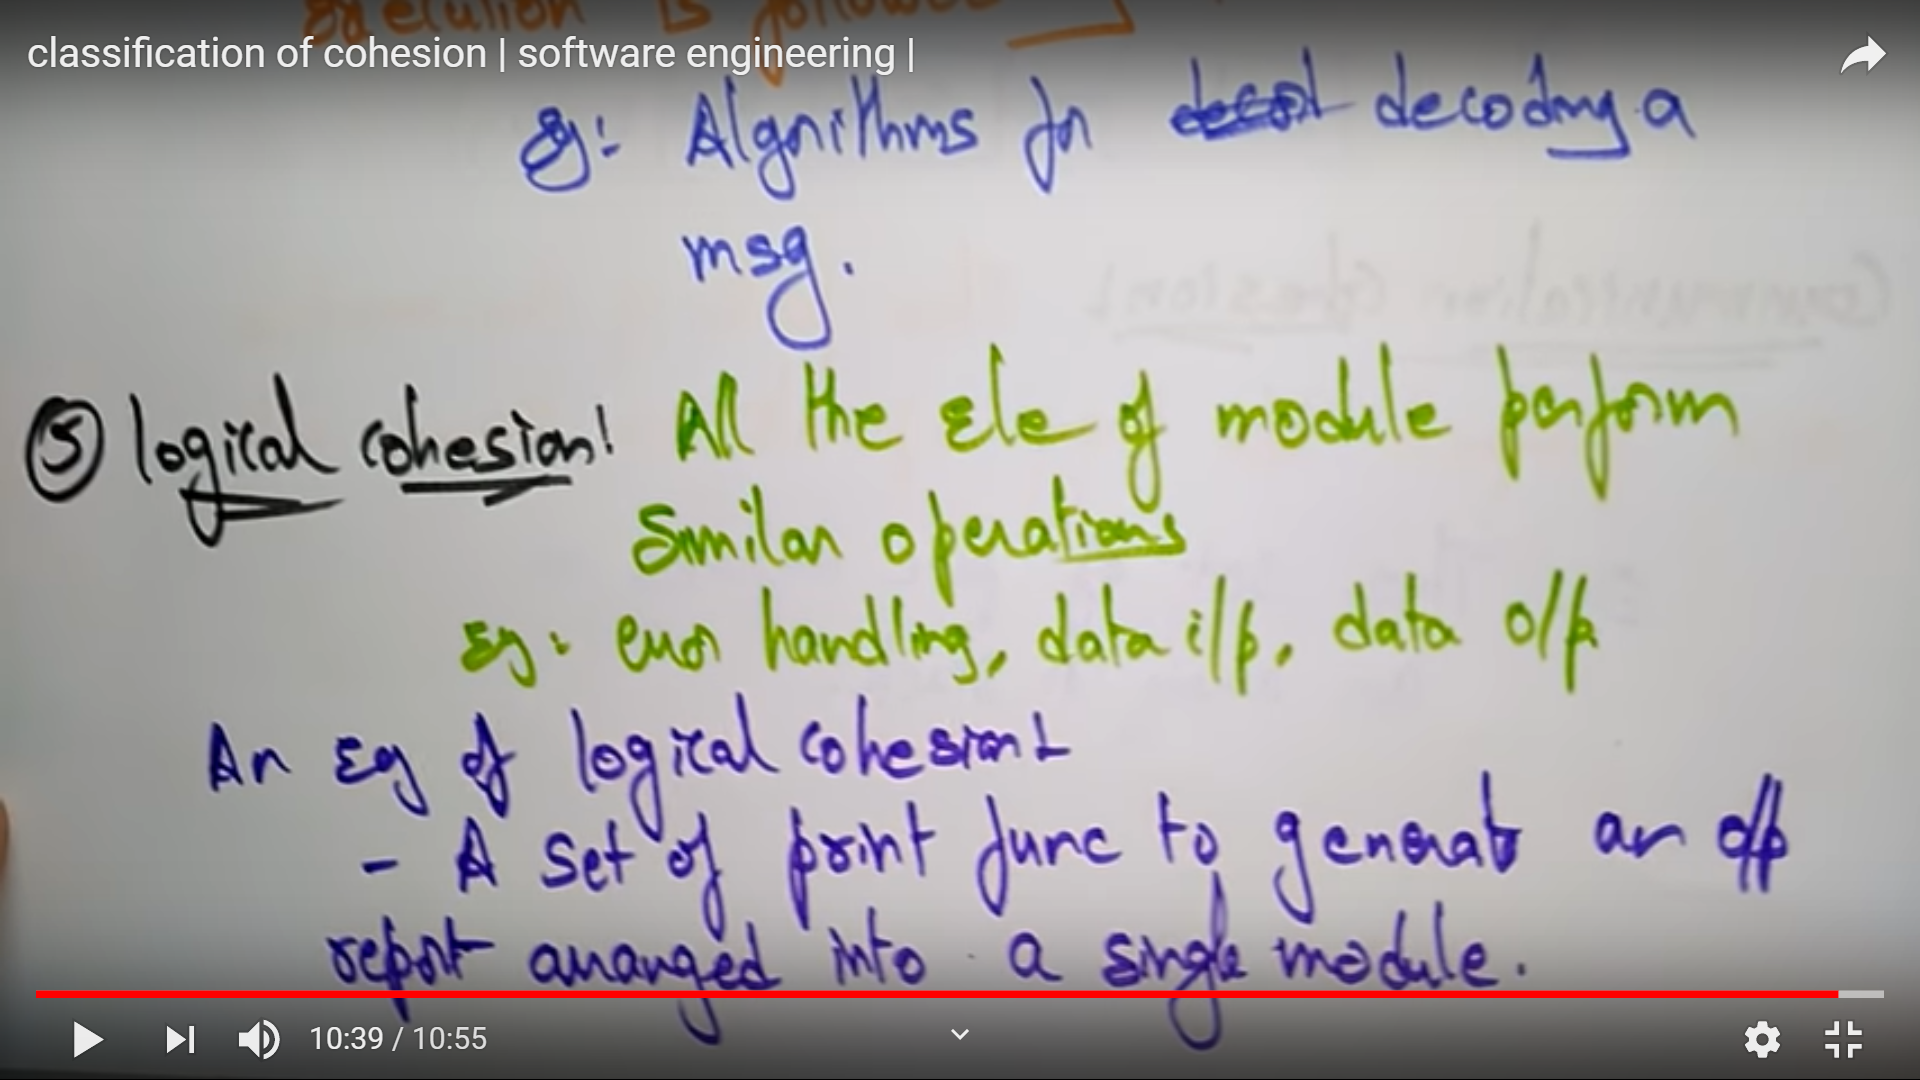 execution is followed
classification of cohesion | software engineering |
eg: Algorithms for decoding a
msg.
Communication Cohesion:
⑤ logical cohesion: All the Ele of module perform
Similar operations
Eg: error handling, data i/p, data o/p
An Eg of logical cohesion:-
- A set of print func to generate an o/p
report arranged into a single module.
10:39 / 10:55